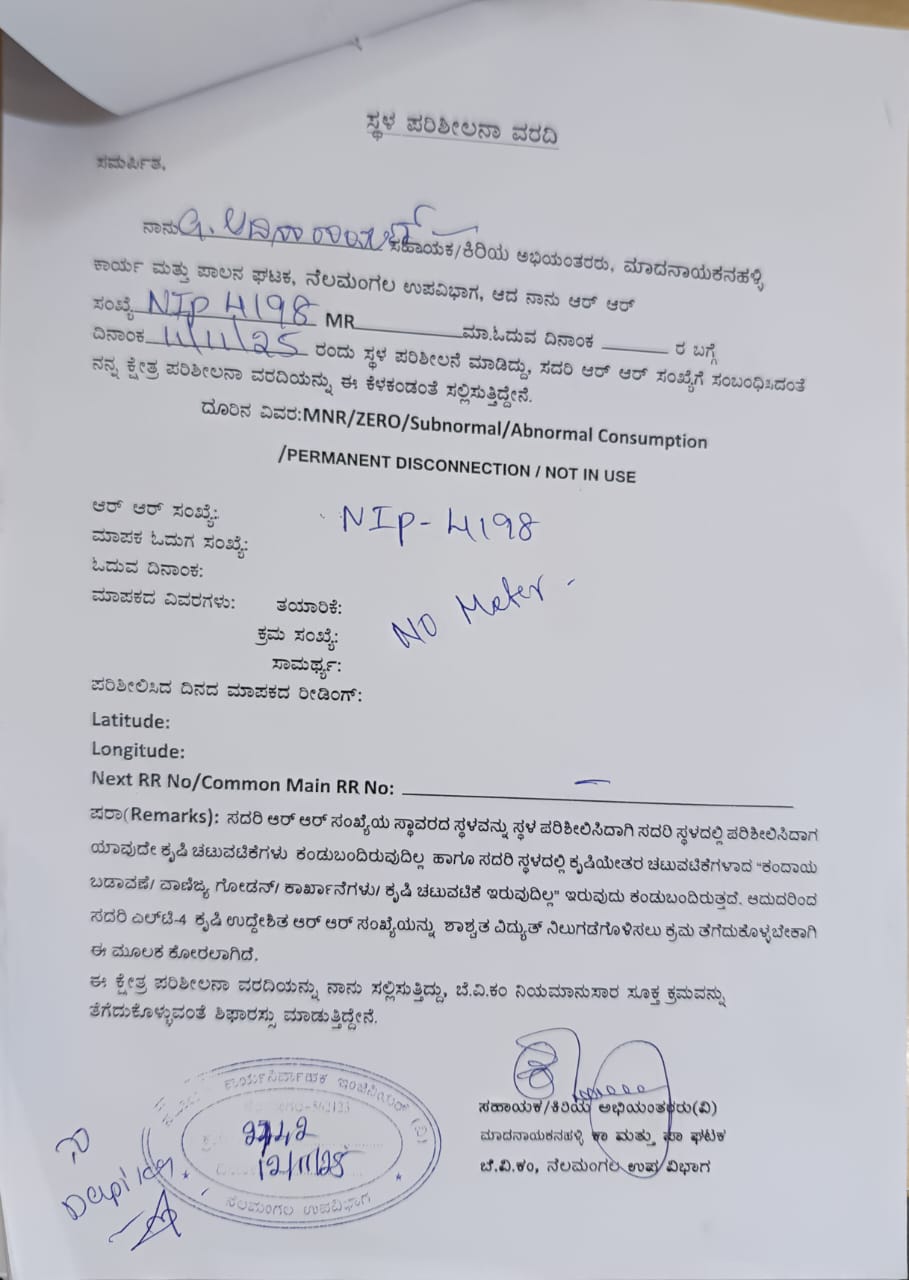 ಸ್ಥಳ ಪರಿಶೀಲನಾ ವರದಿ
ಸಮರ್ಪಿತ,
ನಾನು ಸಹಾಯಕ/ಕಿರಿಯ ಅಭಿಯಂತರರು, ಮಾದನಾಯಕನಹಳ್ಳಿ
ಕಾರ್ಯ ಮತ್ತು ಪಾಲನ ಘಟಕ, ನೆಲಮಂಗಲ ಉಪವಿಭಾಗ, ಆದ ನಾನು ಆರ್ ಆರ್
ಸಂಖ್ಯೆ NIP 4198 MR ಮಾ.ಓದುವ ದಿನಾಂಕ ರ ಬಗ್ಗೆ
ದಿನಾಂಕ 11/11/25 ರಂದು ಸ್ಥಳ ಪರಿಶೀಲನೆ ಮಾಡಿದ್ದು, ಸದರಿ ಆರ್ ಆರ್ ಸಂಖ್ಯೆಗೆ ಸಂಬಂಧಿಸಿದಂತೆ
ನನ್ನ ಕ್ಷೇತ್ರ ಪರಿಶೀಲನಾ ವರದಿಯನ್ನು ಈ ಕೆಳಕಂಡಂತೆ ಸಲ್ಲಿಸುತ್ತಿದ್ದೇನೆ.
ದೂರಿನ ವಿವರ:MNR/ZERO/Subnormal/Abnormal Consumption
/PERMANENT DISCONNECTION / NOT IN USE
ಆರ್ ಆರ್ ಸಂಖ್ಯೆ: NIP-4198
ಮಾಪಕ ಓದುಗ ಸಂಖ್ಯೆ:
ಓದುವ ದಿನಾಂಕ:
ಮಾಪಕದ ವಿವರಗಳು: ತಯಾರಿಕೆ: NO Meter -
ಕ್ರಮ ಸಂಖ್ಯೆ:
ಸಾಮರ್ಥ್ಯ:
ಪರಿಶೀಲಿಸಿದ ದಿನದ ಮಾಪಕದ ರೀಡಿಂಗ್:
Latitude:
Longitude:
Next RR No/Common Main RR No: —
ಪರಾ(Remarks): ಸದರಿ ಆರ್ ಆರ್ ಸಂಖ್ಯೆಯ ಸ್ಥಾವರದ ಸ್ಥಳವನ್ನು ಸ್ಥಳ ಪರಿಶೀಲಿಸಿದಾಗಿ ಸದರಿ ಸ್ಥಳದಲ್ಲಿ ಪರಿಶೀಲಿಸಿದಾಗ
ಯಾವುದೇ ಕೃಷಿ ಚಟುವಟಿಕೆಗಳು ಕಂಡುಬಂದಿರುವುದಿಲ್ಲ ಹಾಗೂ ಸದರಿ ಸ್ಥಳದಲ್ಲಿ ಕೃಷಿಯೇತರ ಚಟುವಟಿಕೆಗಳಾದ “ಕಂದಾಯ
ಬಡಾವಣೆ/ ವಾಣಿಜ್ಯ ಗೋಡನ್/ ಕಾರ್ಖಾನೆಗಳು/ ಕೃಷಿ ಚಟುವಟಿಕೆ ಇರುವುದಿಲ್ಲ” ಇರುವುದು ಕಂಡುಬಂದಿರುತ್ತದೆ. ಆದುದರಿಂದ
ಸದರಿ ಎಲ್‌ಟಿ-4 ಕೃಷಿ ಉದ್ದೇಶಿತ ಆರ್ ಆರ್ ಸಂಖ್ಯೆಯನ್ನು ಶಾಶ್ವತ ವಿದ್ಯುತ್ ನಿಲುಗಡೆಗೊಳಿಸಲು ಕ್ರಮ ತೆಗೆದುಕೊಳ್ಳಬೇಕಾಗಿ
ಈ ಮೂಲಕ ಕೋರಲಾಗಿದೆ.
ಈ ಕ್ಷೇತ್ರ ಪರಿಶೀಲನಾ ವರದಿಯನ್ನು ನಾನು ಸಲ್ಲಿಸುತ್ತಿದ್ದು, ಬೆ.ವಿ.ಕಂ ನಿಯಮಾನುಸಾರ ಸೂಕ್ತ ಕ್ರಮವನ್ನು
ತೆಗೆದುಕೊಳ್ಳುವಂತೆ ಶಿಫಾರಸ್ಸು ಮಾಡುತ್ತಿದ್ದೇನೆ.
ಸಹಾಯಕ/ಕಿರಿಯ ಅಭಿಯಂತರರು(ವಿ)
ಮಾದನಾಯಕನಹಳ್ಳಿ ಕಾ ಮತ್ತು ಪಾ ಘಟಕ
ಬೆ.ವಿ.ಕಂ, ನೆಲಮಂಗಲ ಉಪ ವಿಭಾಗ
ಕಾರ್ಯನಿರ್ವಾಹಕ ಇಂಜಿನಿಯರ್ (ವಿ)
12/11/25
ನೆಲಮಂಗಲ ಉಪವಿಭಾಗ